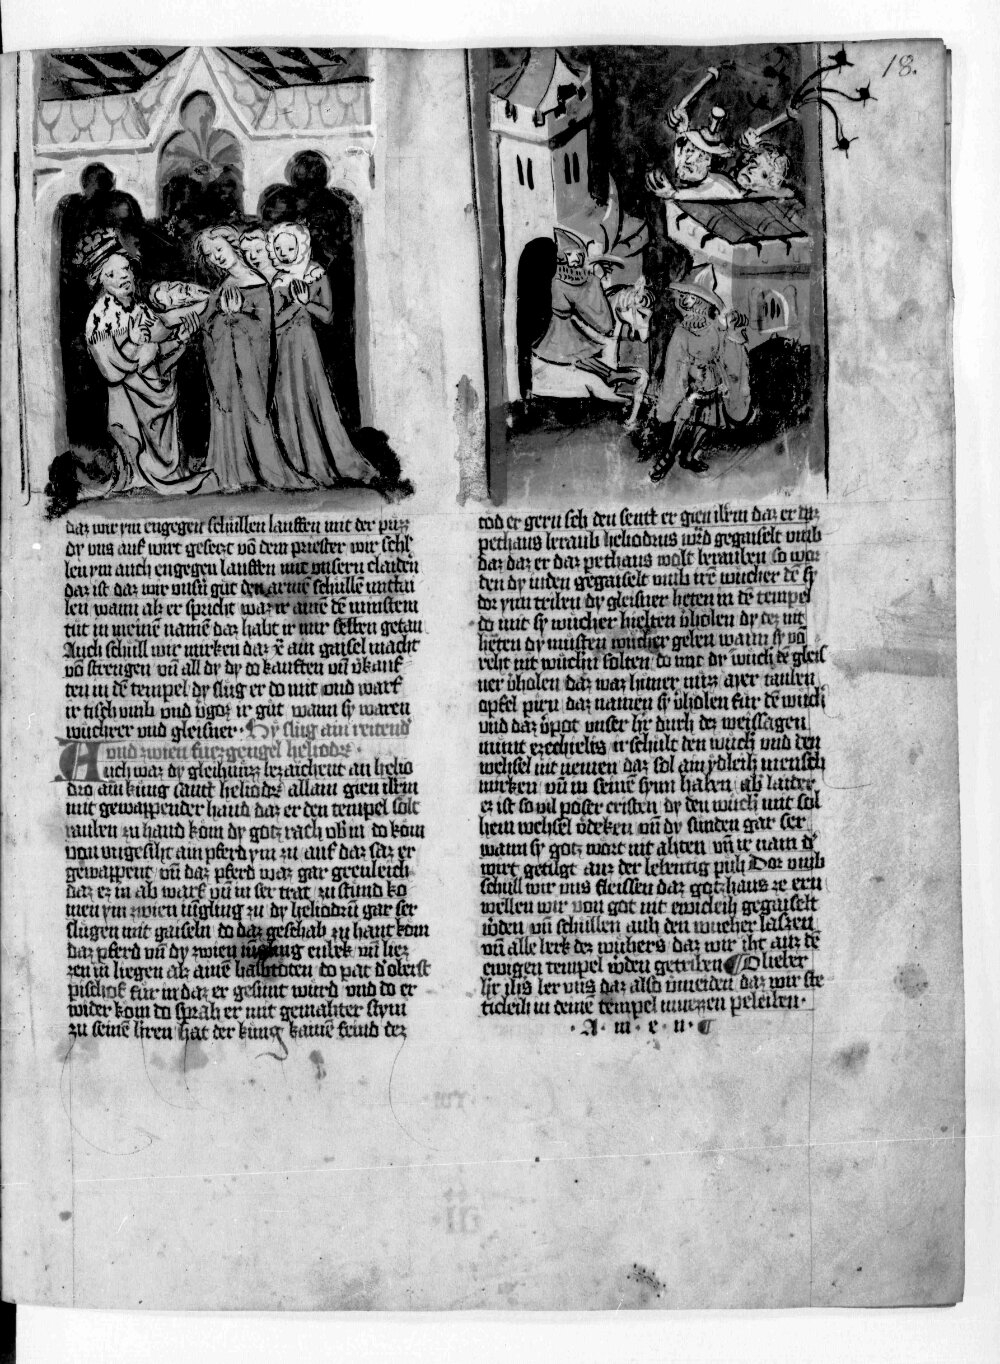 18.
daz wir ym engegen schüllen lauffen mit der půzz
dy vns auf wirt gesetzt vō dem priester wir schl
len ym auch engegen lauffen mit vnsern claiden
daz ist daz wir vnsn̄ gůt den armē schüllē mittai
len wann alz er spricht waz ir ainē dē minstem
tůt in meinē namē daz habt ir mir selben getan
Auch schüll wir mirken daz er ain gaisel macht
vō strengen vn̄ all dy dy do kauften vn̄ v̉kauf
ten in dē tempel dy slůg er do mit vnd warf
ir tisch vmb vnd v̉goz ir gůt wann sy waren
wůchrer vnd gleisner · Hy slůg ain reitend̉
vnd zwien fuezgengel heliodr̄
Auch waz dy gleihnizz bezaichent an helio
dro ain küng sant heliodr̄ allain gien ilrm
mit gewappender hand daz er den tempel solt
rauben zu hand kom dy gotz rach vb̉ in do kom
von vngesiht ain pferd ym zu auf daz saz er
gewappent vn̄ daz pferd waz gar greuleich
daz ez in ab warf vn̄ in ser trat zu stund ko
men ym zwien iüngling zu dy heliodrū gar ser
slůgen mit gaiseln do daz geschah zu hant kom
daz pferd vn̄ dy zwien iüngling enwek vn̄ liez
zen in liegen alz ainē halbtoten do pat d̉ oberst
pischof für in daz er gesunt würd vnd do er
wider kom do sprah er mit gemahter stym
zu seinē h̉ren hat der küng kainē feind dez
tod er gern seh den sent er gien ilrm daz er daz
pethaus beraub heliodrus w̉d gegaiselt vmb
daz daz er daz pethaus wolt berauben so wor
den dy iuden gegaiselt vmb irē wůcher dē sy
dor ynn triben dy gleisner heten in dē tempel
do mit sy wůcher hielten v̉holen dy dez nit
heten dy musten wůcher geben wann sy vō
reht nit wůchn̄ solten do mit dy wůch̉ dē gleis
ner v̉holen daz waz hüner nüzz ayer tauben
opfel pirn daz namen sy v̉holen für dē wůch̉
vnd daz v̉pot vnser h̉r durh dez weissagen
munt ezechielis ir schült den wůch̉ vnd den
wehsel nit nemen daz sol ain ydleih mensch
mirken vn̄ in seinē synn haben ab̉ laider
ez ist so vil pöser cristen dy den wůch̉ mit sol
hem wehsel v̉deken vn̄ dy sünden gar ser
wann sy gotz wort nit ahten vn̄ ir nam d̉
wirt getilgt auz der lebentig půh Dor vmb
schüll wir vns fleissen daz gotzhaus ze ern
wellen wir von got nit ewicleih gegaiselt
w̉den vn̄ schüllen auh den wucher laszen
vn̄ alle werk dez wůhers daz wir iht auz dē
ewigen tempel w̉den getriben O lieber
h̉r ih̄s ler vns daz also v̉meiden daz wir ste
ticleih in deinē tempel muezzen peleiben ·
· A · m · e · n ·